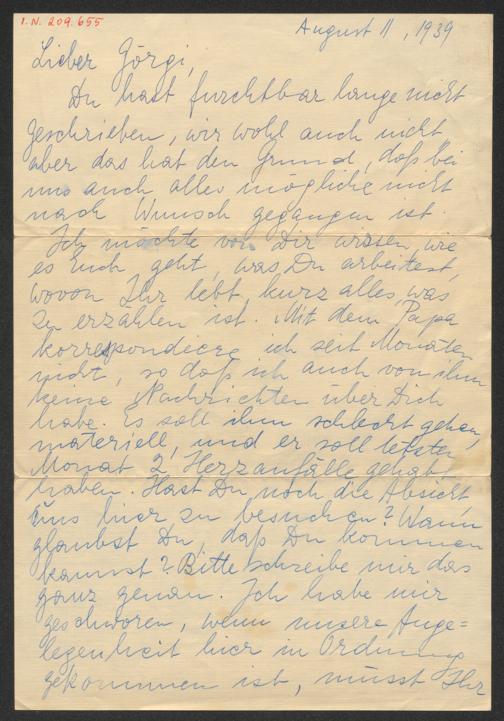 I.N. 209.655
August 11, 1939
Lieber Görgi,
Du hast furchtbar lange nicht
geschrieben, wir wohl auch nicht
aber das hat den Grund, daß bei
uns auch alles mögliche nicht
nach Wunsch gegangen ist.
Ich möchte von Dir wissen, wie
es Euch geht, was Du arbeitest,
wovon Ihr lebt, kurz alles, was
zu erzählen ist. Mit dem Papa
korrespondiere ich seit Monaten
nicht, so daß ich auch von ihm
keine Nachrichten über Dich
habe. Es soll ihm schlecht gehen,
materiell, und er soll letzten
Monat 2 Herzanfälle gehabt
haben. Hast Du noch die Absicht
uns hier zu besuchen? Wann
glaubst Du, daß Du kommen
kannst? Bitte schreibe mir das
ganz genau. Ich habe mir
geschworen, wenn unsere Ange=
legenheit hier in Ordnung
gekommen ist, müsst Ihr